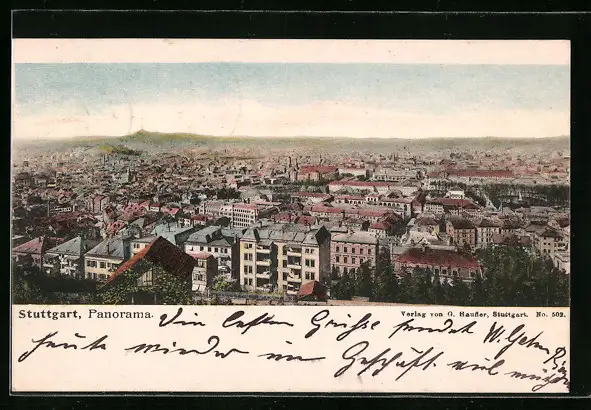 Stuttgart, Panorama.
Verlag von G. Haufler, Stuttgart. No. 502.
Die besten Grüße sendet W.
heute im Geschäft viel